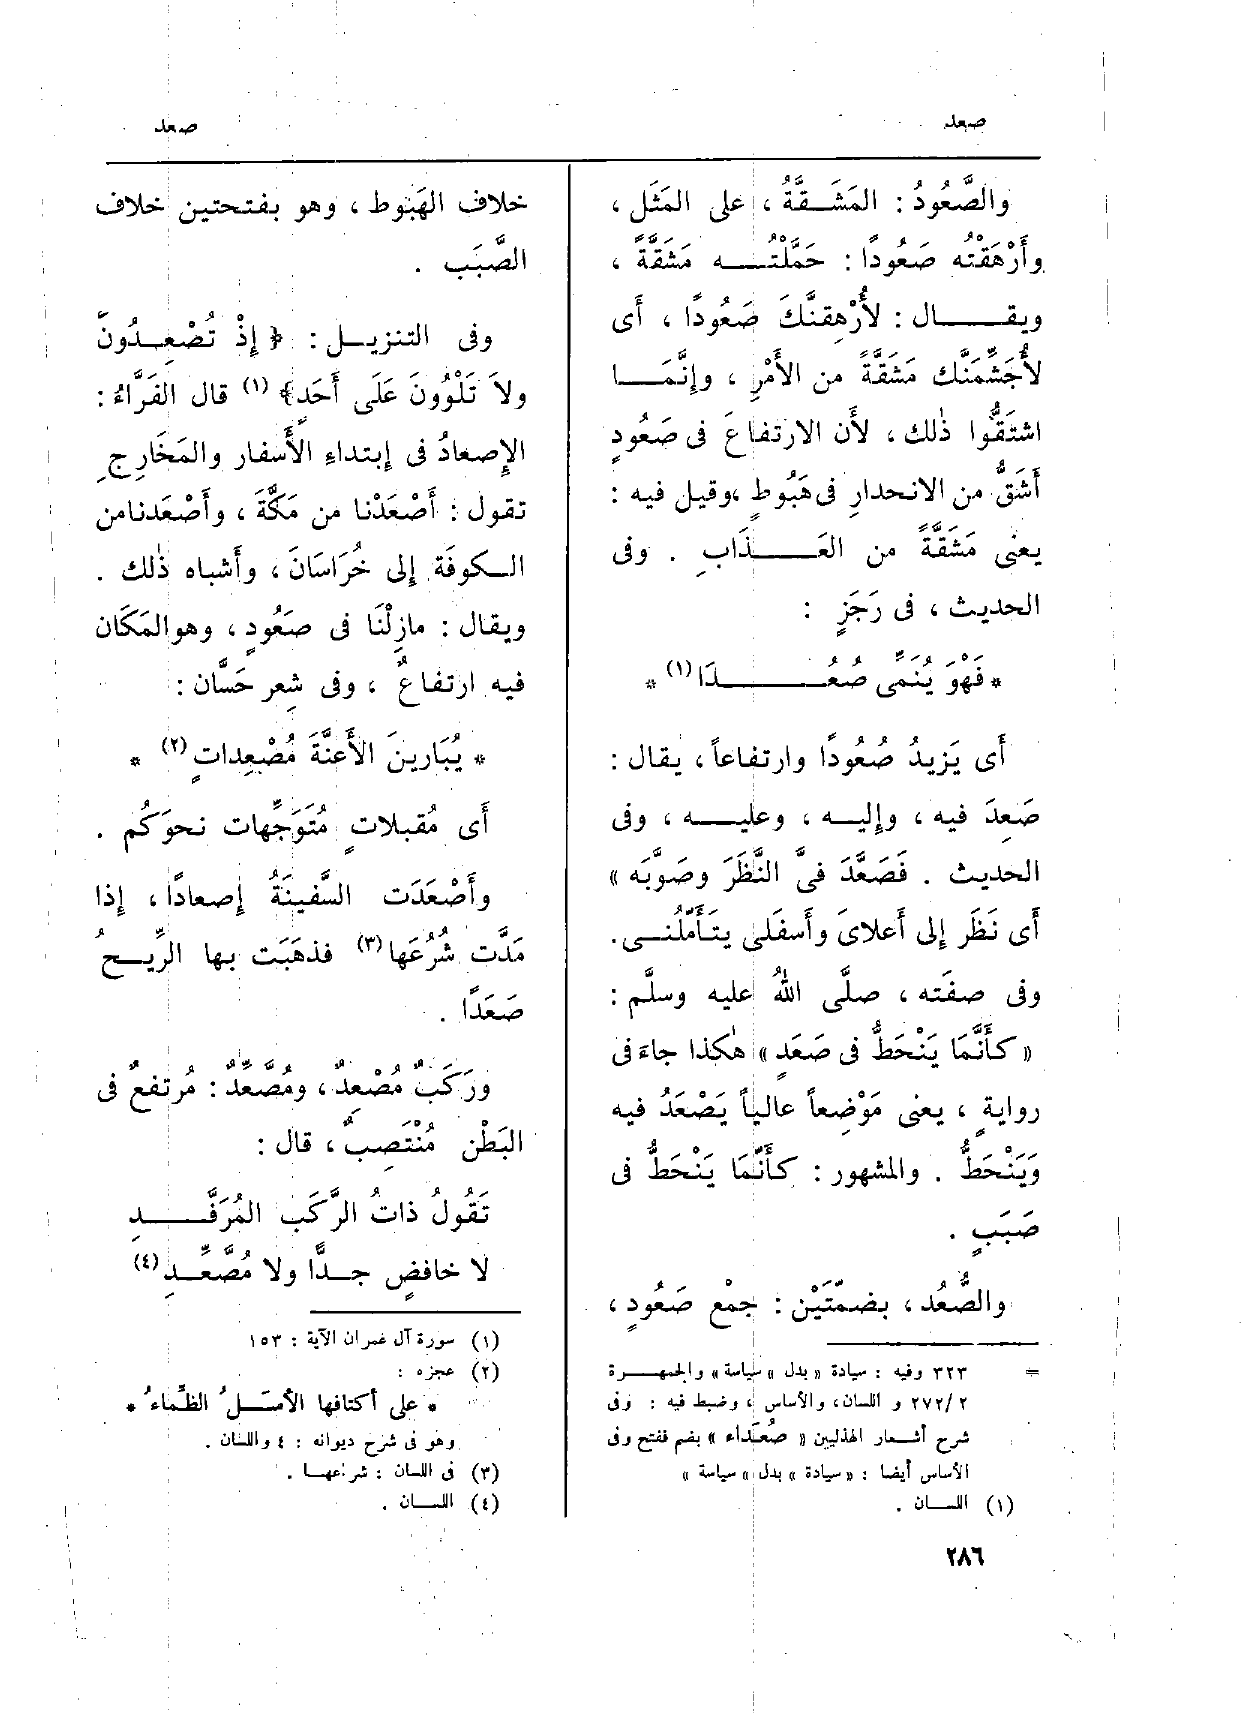 صعد
صعد
والصَّعُودُ : المَشَقَّةُ ، على المَثَل ،
وأَرْهَقْتُه صَعُودًا : حَمَّلْتُه مَشَقَّةً ،
ويقال : لأُرْهِقنَّكَ صَعُودًا ، أى
لأُجَشِّمَنَّك مَشَقَّةً من الأَمْرِ ، وإنَّمَا
اشتَقُّوا ذٰلك ، لأَن الارتفاعَ فى صَعُودٍ
أَشَقُّ من الانحدارِ فى هَبُوطٍ ،وقيل فيه :
يعنى مَشَقَّةً من العَذَابِ . وفى
الحديث ، فى رَجَزٍ :
* فَهْوَ يُنَمِّى صُعُدَا (١) *
أى يَزِيدُ صُعُودًا وارتفاعاً ، يقال :
صَعِدَ فيه ، وإليه ، وعليه ، وفى
الحديث . فَصَعَّدَ فىَّ النَّظَرَ وصَوَّبَه »
أى نَظَر إلى أعلاىَ وأَسفلى يتَأَمَّلُنى.
وفى صفته ، صلَّى اللهُ عليه وسلَّم :
« كأَنَّمَا يَنْحَطُّ فى صَعَدٍ » هٰكذا جاءَ فى
روايةٍ ، يعنى مَوْضِعاً عالياً يَصْعَدُ فيه
وَيَنْحَطُّ . والمشهور : كأَنَّمَا يَنْحَطُّ فى
صَبَبٍ .
والصُّعُد ، بضمّتَيْن : جمْع صَعُودٍ ،
= ٣٢٣ وفيه : سيادة « بدل » سياسة » والجمهرة
٢٧٢/٢ و اللسان، والأساس ، وضبط فيه : وفى
شرح أشعار الهذليين « صُعَداء » بضم ففتح وفى
الأساس أيضا : « سيادة » بدل « سياسة »
(١) اللسان .
خلاف الهَبُوط ، وهو بفتحتين خلاف
الصَّبَب .
وفى التنزيل : ﴿ إِذْ تُصْعِدُونَ
ولاَ تَلْوُونَ عَلَى أَحَدٍ﴾ (١) قال الفَرَّاءُ :
الإِصعادُ فى إبتداءِ الأَسفار والمَخَارِجِ
تقول : أَصْعَدْنا من مَكَّةَ ، وأَصْعَدنامن
الكوفَة إلى خُرَاسَانَ ، وأَشباه ذٰلك .
ويقال : مازِلْنَا فى صَعُودٍ ، وهوالمَكَان
فيه ارتفاعٌ ، وفى شِعر حَسَّان :
* يُبَارِينَ الأَعِنَّةَ مُصْعِداتٍ (٢) *
أى مُقبلاتٍ مُتَوَجِّهات نحوَكُم .
وأَصْعَدَت السَّفينَةُ إصعادًا ، إذا
مَدَّت شُرُعَها (٣) فذهَبَت بها الرِّيحُ
صَعَدًا .
ورَكَبٌ مُصْعِدٌ ، ومُصَّعِّدٌ : مُرتفعٌ فى
البَطْنِ مُنْتَصِبٌ ، قال :
تَقُولُ ذاتُ الرَّكَبِ المُرَفَّدِ
لا خافضٍ جدًّا ولا مُصَّعِّدِ (٤)
(١) سورة آل عمران الآية : ١٥٣
(٢) عجزه :
* على أكتافها الأَسَلُ الظِّماءُ *
وهو فى شرح ديوانه : ٤ واللسان .
(٣) فى اللسان : شراعها .
(٤) اللسان .
٢٨٦